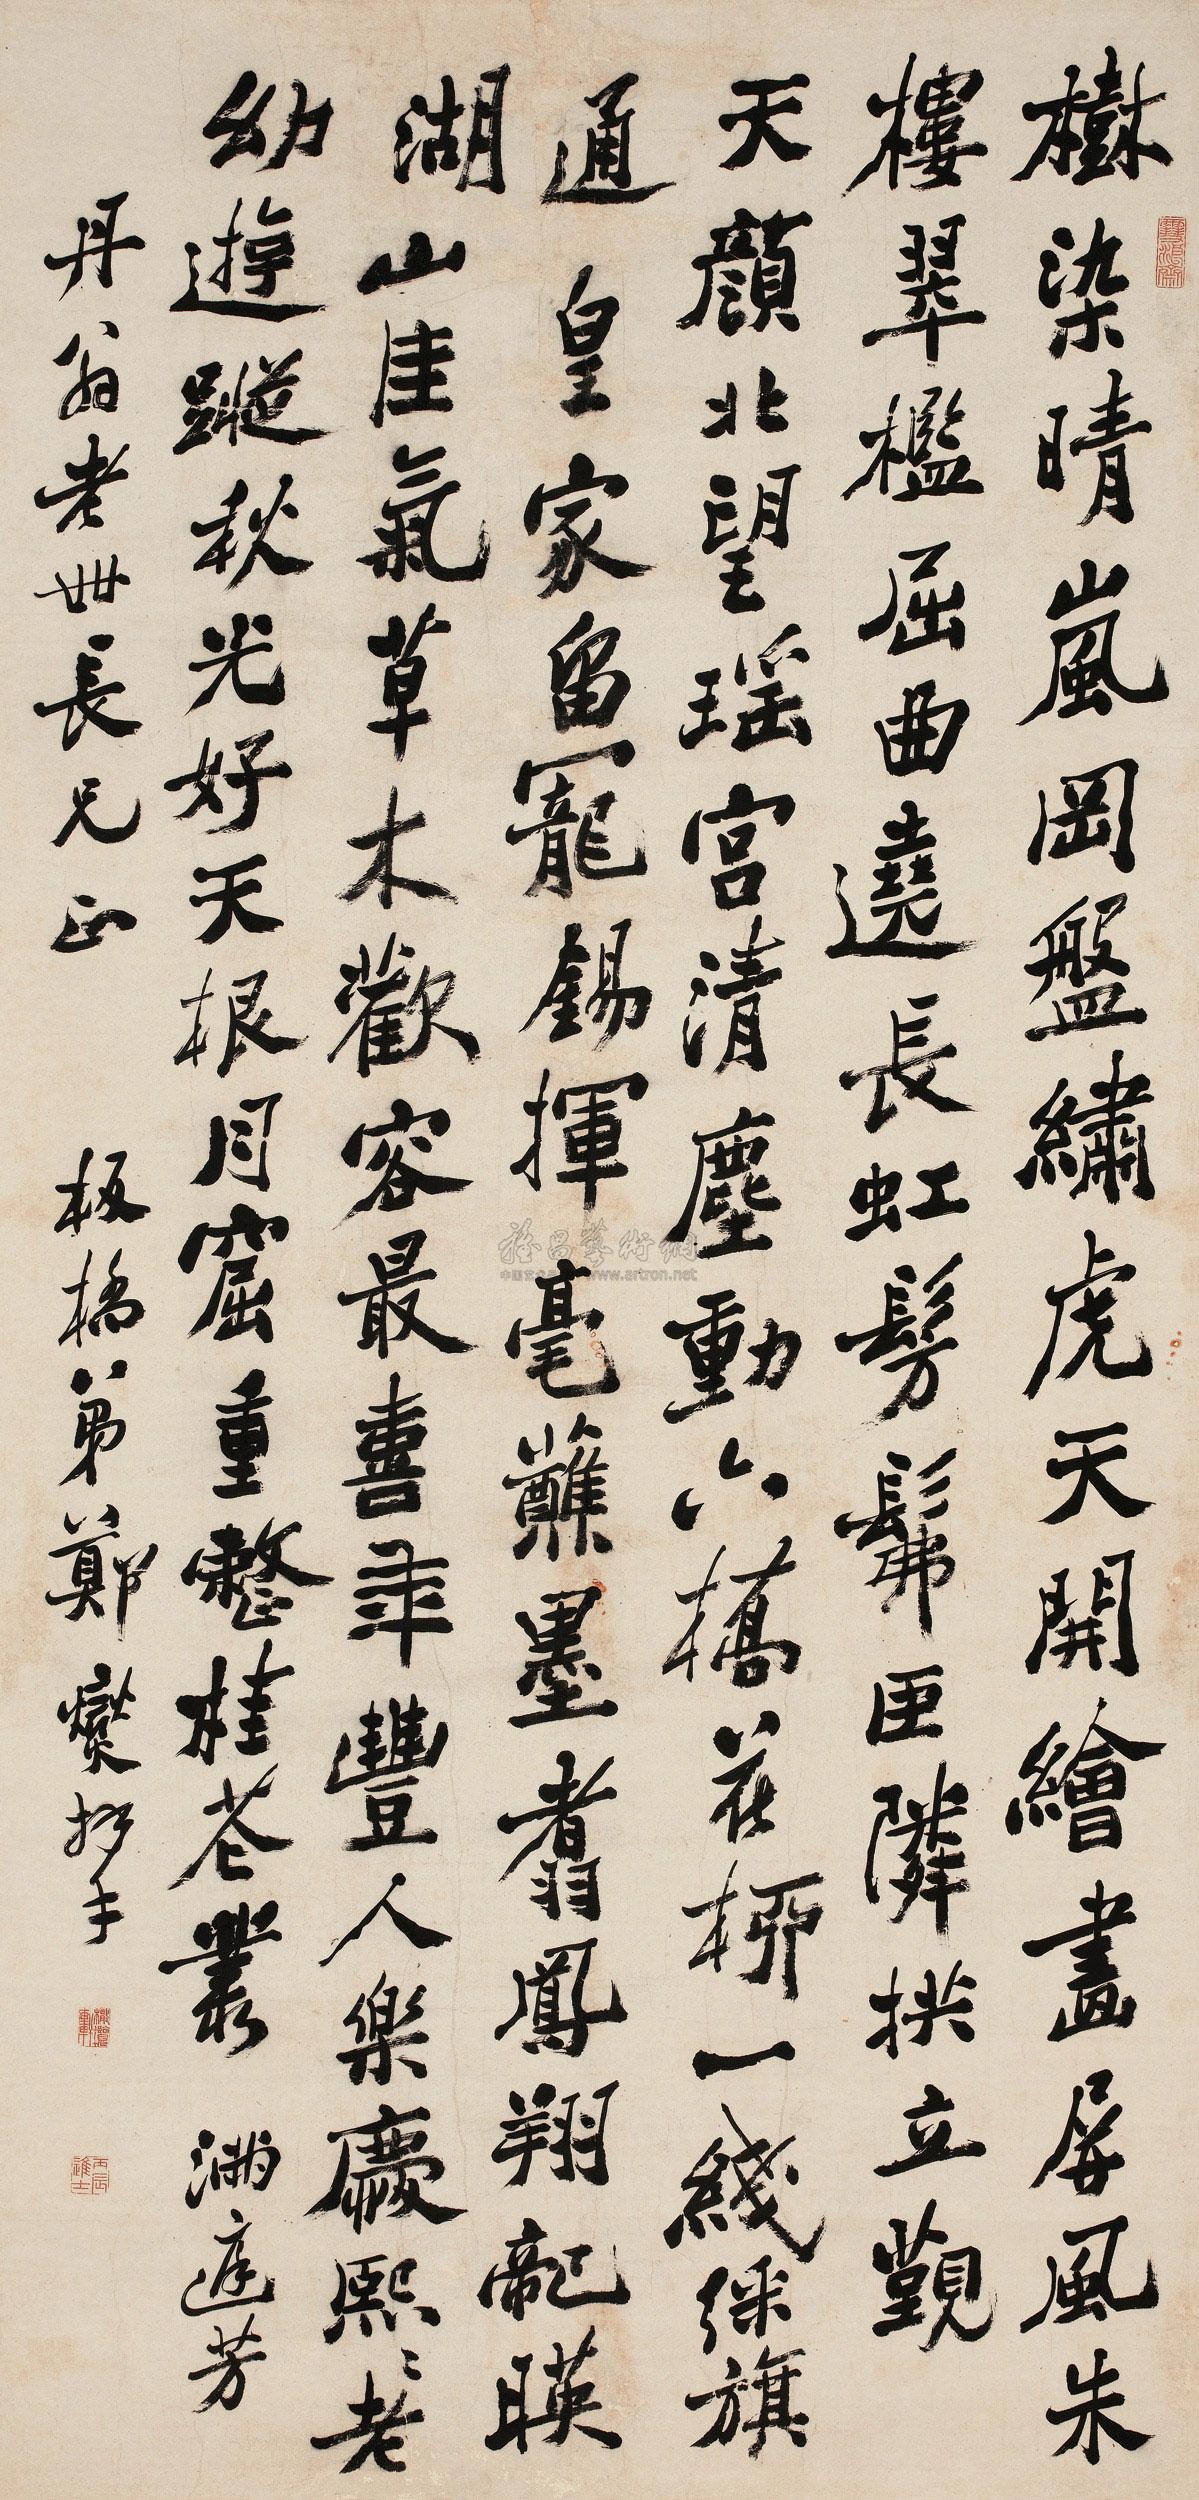 樹染晴嵐岡盤繡虎天開繪畫屏風朱
樓翠檻屈曲遶長虹髣髴臣隣拱立覲
天顔北望瑶宫清塵動六橋花柳一綫綵旗
通皇家留寵錫揮毫蘸墨翥鳳翔龍暎
湖山佳氣草木歡容最喜年豐人樂慶熙熙老
幼遊蹤秋光好天根月窟重整桂花叢 滿庭芳
丹翁老世長兄正 板橋弟鄭燮拜手
丙辰進士
www.artron.net